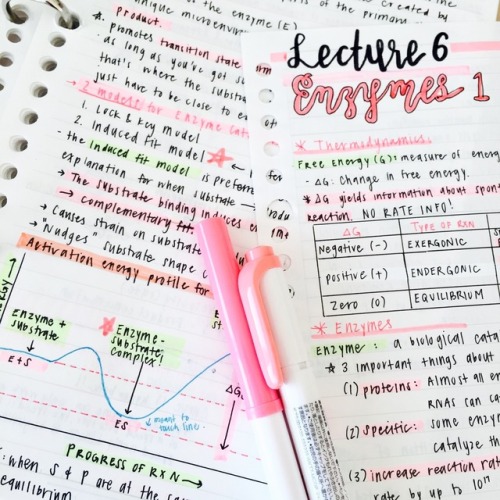 created by
the primary
unique microenvir
of the enzyme (E)
product.
promotes transition state
as long as you've got
that's where the substra
just have to be close to
→ 2 models for Enzyme Cat
1. Lock & key Model
2. Induced fit Model
- the induced fit model is prefer
explanation for when substrate
→ The substrate binding induces
→ complementary fit.
→ Causes strain on substrat
→ "Nudges" substrate shape
Activation energy profile for
Enzyme +
substrate
E+S
Enzyme-
substrate
complex!
ES
meant to
touch lines
ΔG
PROGRESS OF RXN →
: when S & P are at the same
equilibrium
Lecture 6
Enzymes 1
* Thermodynamics:
Free Energy (G): measure of energ
- ΔG: Change in free energy.
* ΔG yields information about spon
reaction. NO RATE INFO!
ΔG TYPE OF RXN
Negative (-) EXERGONIC
positive (+) ENDERGONIC
Zero (0) EQUILIBRIUM
* Enzymes
ENZYME: a biological cata
3 important things about
(1) proteins: Almost all en
RNAs can ca
(2) specific: some enzym
catalyze th
(3) increase reaction rat
rate by up to 10